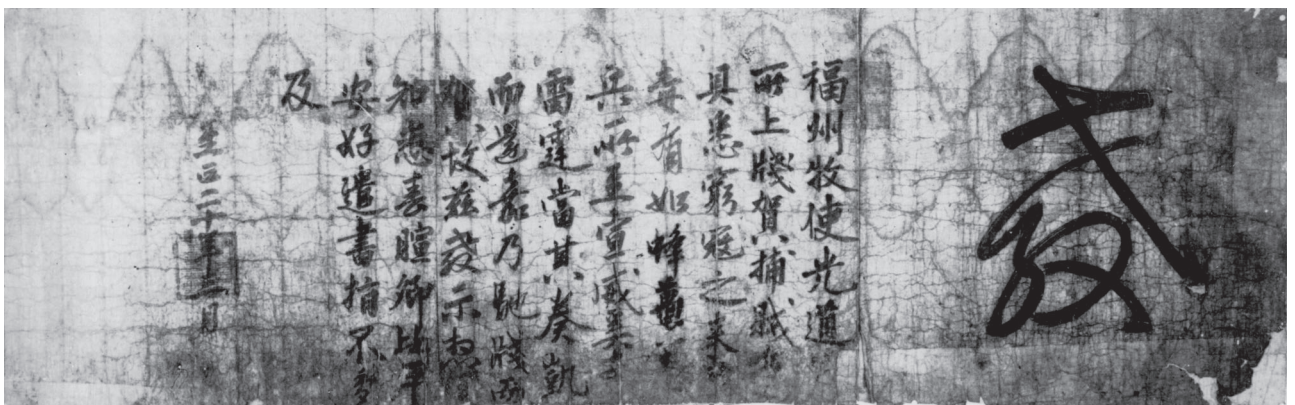 教
福州牧使光道
所上牋賀捕賊事
具悉窮寇之來
毒有如蜂蠆
兵所至宣威等
雷霆當其奏凱
而還嘉乃馳牋
故玆敎示想
知悉春暄卿比平
安好遣書指不多
及
至正二十年 月